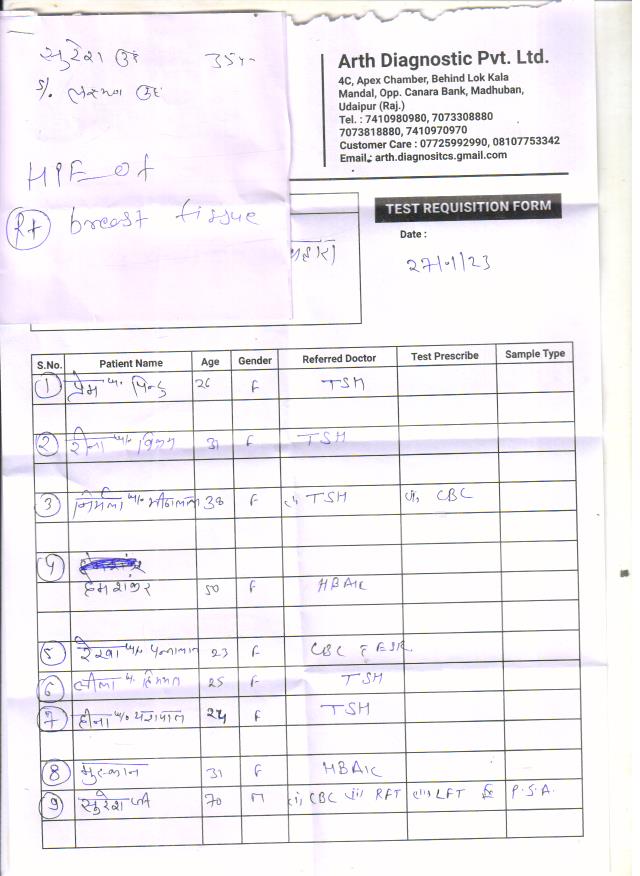 सुरेश जी 35y-
S/. लक्ष्मण जी
HPE of
Rt breast tissue
Arth Diagnostic Pvt. Ltd.
4C, Apex Chamber, Behind Lok Kala
Mandal, Opp. Canara Bank, Madhuban,
Udaipur (Raj.)
Tel. : 7410980980, 7073308880
7073818880, 7410970970
Customer Care : 07725992990, 08107753342
Email.: arth.diagnositcs.gmail.com
TEST REQUISITION FORM
Date :
27/1/23
S.No. Patient Name Age Gender Referred Doctor Test Prescribe Sample Type
1 प्रेम w. पिन्टु 26 F TSH
2 w/. विक्रम 31 F TSH
3 निर्मला w/. 38 F i, TSH ii, CBC
4
हेमशंकर 50 F HBA1C
5 रेखा w/. पन्नालाल 23 F CBC ESR
6 लीला w. हिम्मत 25 F TSH
7 हीना w/. यशपाल 24 F TSH
8 मुस्कान 31 F HBA1C
9 सुरेश जी 70 M i, CBC ii, RFT iii, LFT P.S.A.